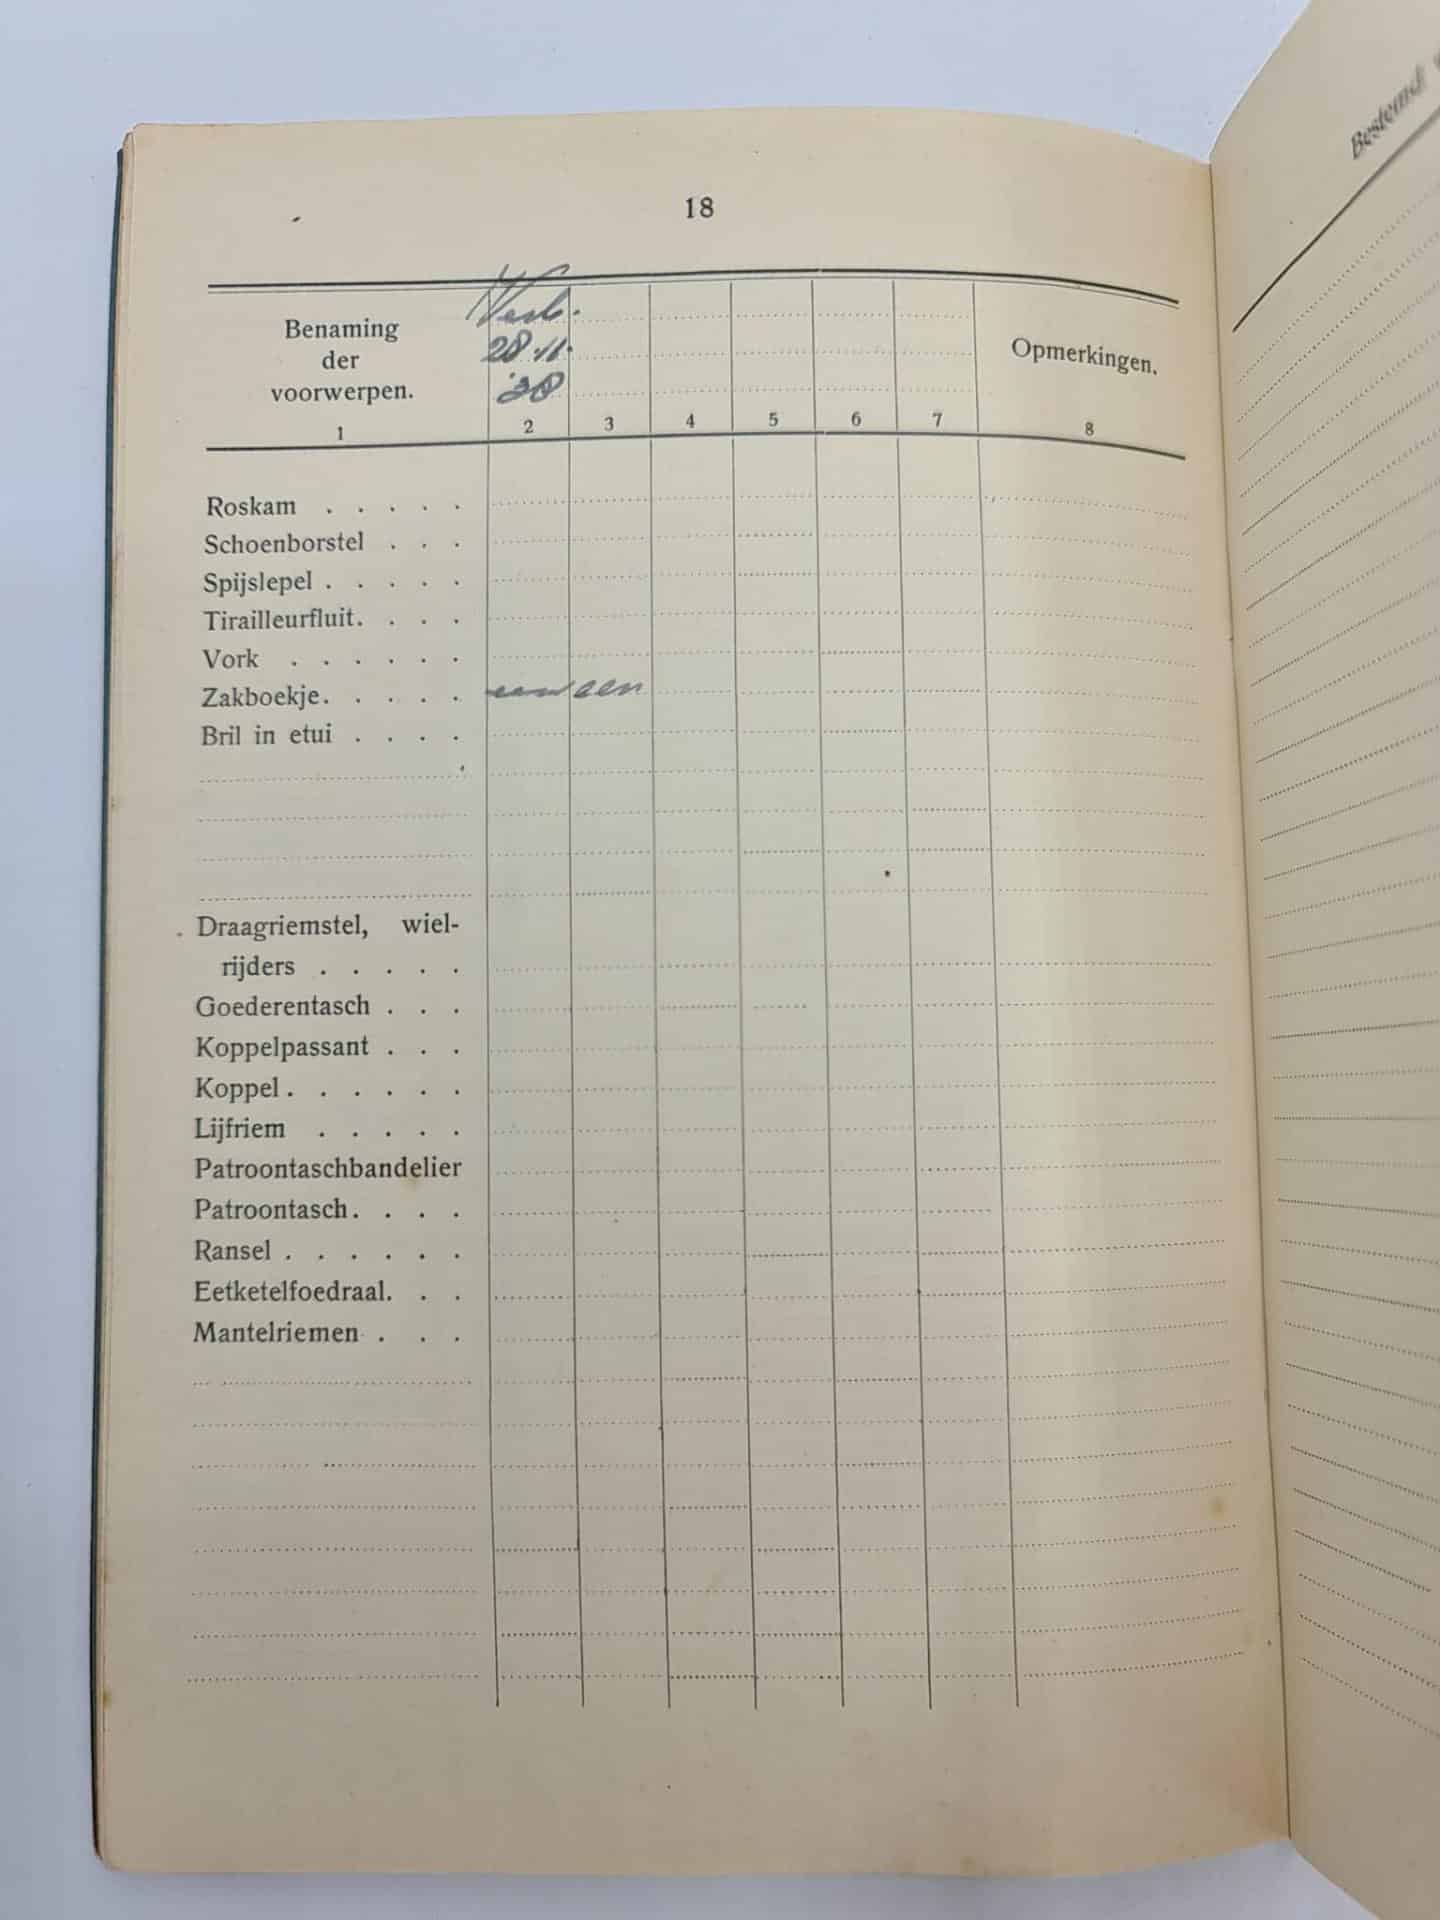 18
Benaming
der
voorwerpen.
Verb.
28.11.
'38
Opmerkingen.
1 2 3 4 5 6 7 8
Roskam . . . . .
Schoenborstel . . .
Spijslepel . . . . .
Tirailleurfluit. . . .
Vork . . . . . .
Zakboekje. . . . . een
Bril in etui . . . .
Draagriemstel, wiel-
rijders . . . . .
Goederentasch . . .
Koppelpassant . . .
Koppel . . . . . .
Lijfriem . . . . .
Patroontaschbandelier
Patroontasch. . . .
Ransel . . . . . .
Eetketelfoedraal. . .
Mantelriemen . . .
Bestemd